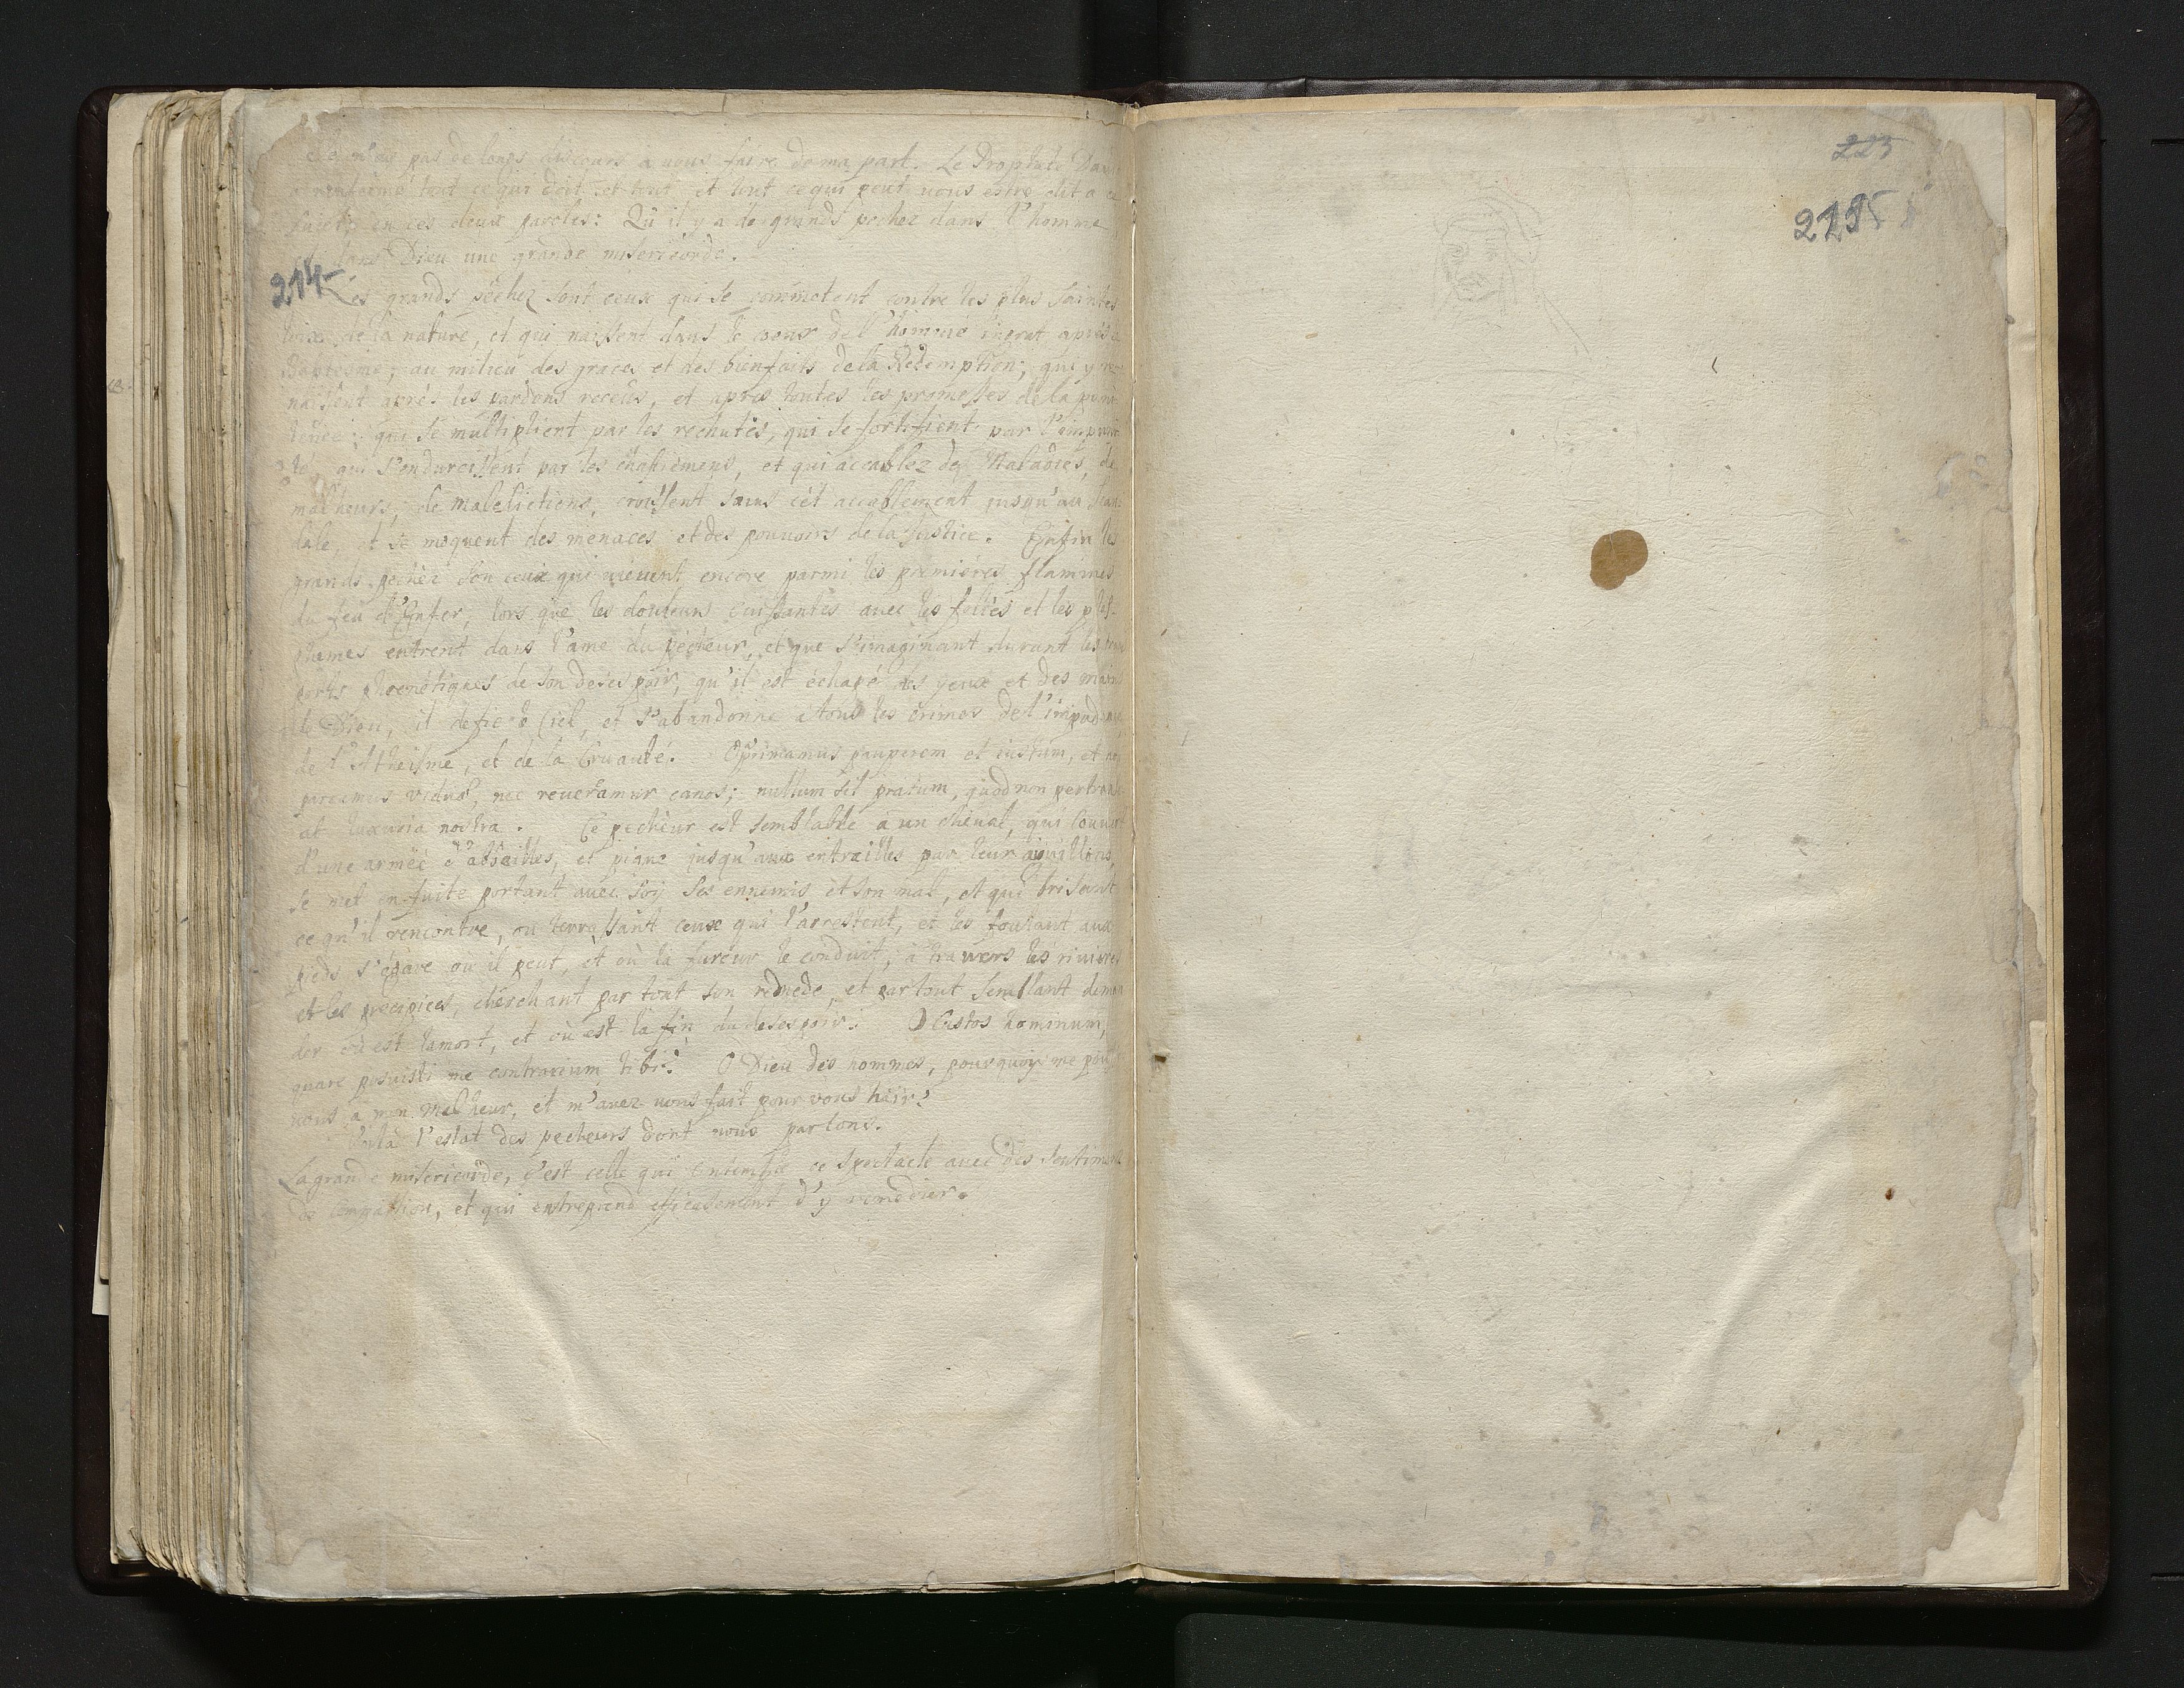 Je n'ay pas de longs discours a vous faire de ma part. Le Prophete Dav
a renfermé tout ce qui doit et tout et tout ce qui peut vous estre dit a ce
sujet, en ces deux paroles: Qu'il y a de grands pechez dans l'homme
et dans Dieu une grande misericorde.
214
Les grands péchez sont ceux qui se commetent contre les plus saintes
loix de la nature, et qui naissent dans le coeur de l'homme ingrat aprés le
Baptesme, au milieu des graces et des bienfaits de la Redemption; qui y re-
naissent aprés les pardons receus, et apres toutes les promesses de la peni
tence; qui se multiplient par les rechutes, qui se fortifient par l'impuni
té, qui s'endurcissent par les chatiemens, et qui accablez de Maladies, de
malheurs, de maledictions, croissent sous cét accablement jusqu'au scan
dale, et se moquent des menaces et des pouvoirs de la Justice. Enfin les
grands pechez son ceux qui vieuent encore parmi les premieres flammes
du feu d'Enfer, lors que les douleurs cuissantes avec les folies et les blas-
phemes entrent dans l'ame du pécheur, et que s'imaginant durant les trans
ports phrenétiques de son desespoir, qu'il est échapé des yeux et des mains
de Dieu, il defie le Ciel, et s'abandonne a tous les crimes de l'impudence,
de l'Atheisme, et de la Cruauté. Opprimamus pauperem et iustum, et ne
parcamus viduae, nec reueramur canos; nullum sit pratum, quod non pertrans
at luxuria nostra. Ce pecheur est semblable a un cheual, qui couuert
d'une armée d'abeailles, et piqué jusqu'aux entrailles par leur aiguillons,
se met en fuite portant avec soy ses ennemis et son mal, et qui brisant
ce qu'il rencontre, ou terrassant ceux qui l'arrestent, et les foulant aux
pieds s'égare où il peut, et où la fureur le conduit, à travers les rivieres
et les precipices, cherchant par tout son remede, et par tout semblant deman
der où est la mort, et où est la fin du desespoir: O Custos hominum,
quare posuisti me contrarium tibi? O Dieu des hommes, pourquoy me
vous a mon malheur, et m'avez vous fait pour vous haïr?
Voila l'estat des pecheurs dont nous parlons.
La grande misericorde, c'est celle qui contemple ce spectacle avec des sentimens
de compassion, et qui entreprend efficasement d'y remedier.
225